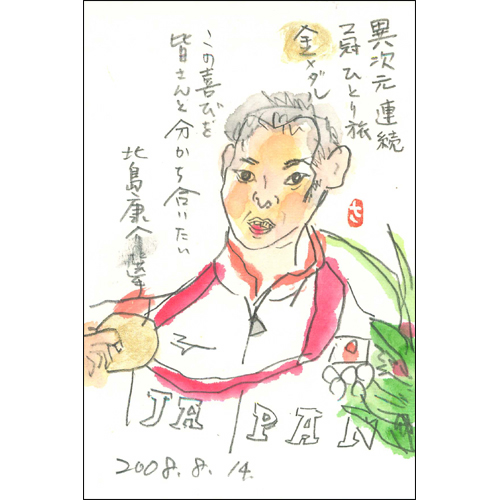 異次元連続
2冠ひとり旅
金メダル
この喜びを
皆さんと分かち合いたい
北島康介選
さ
JAPAN
2008.8.14.